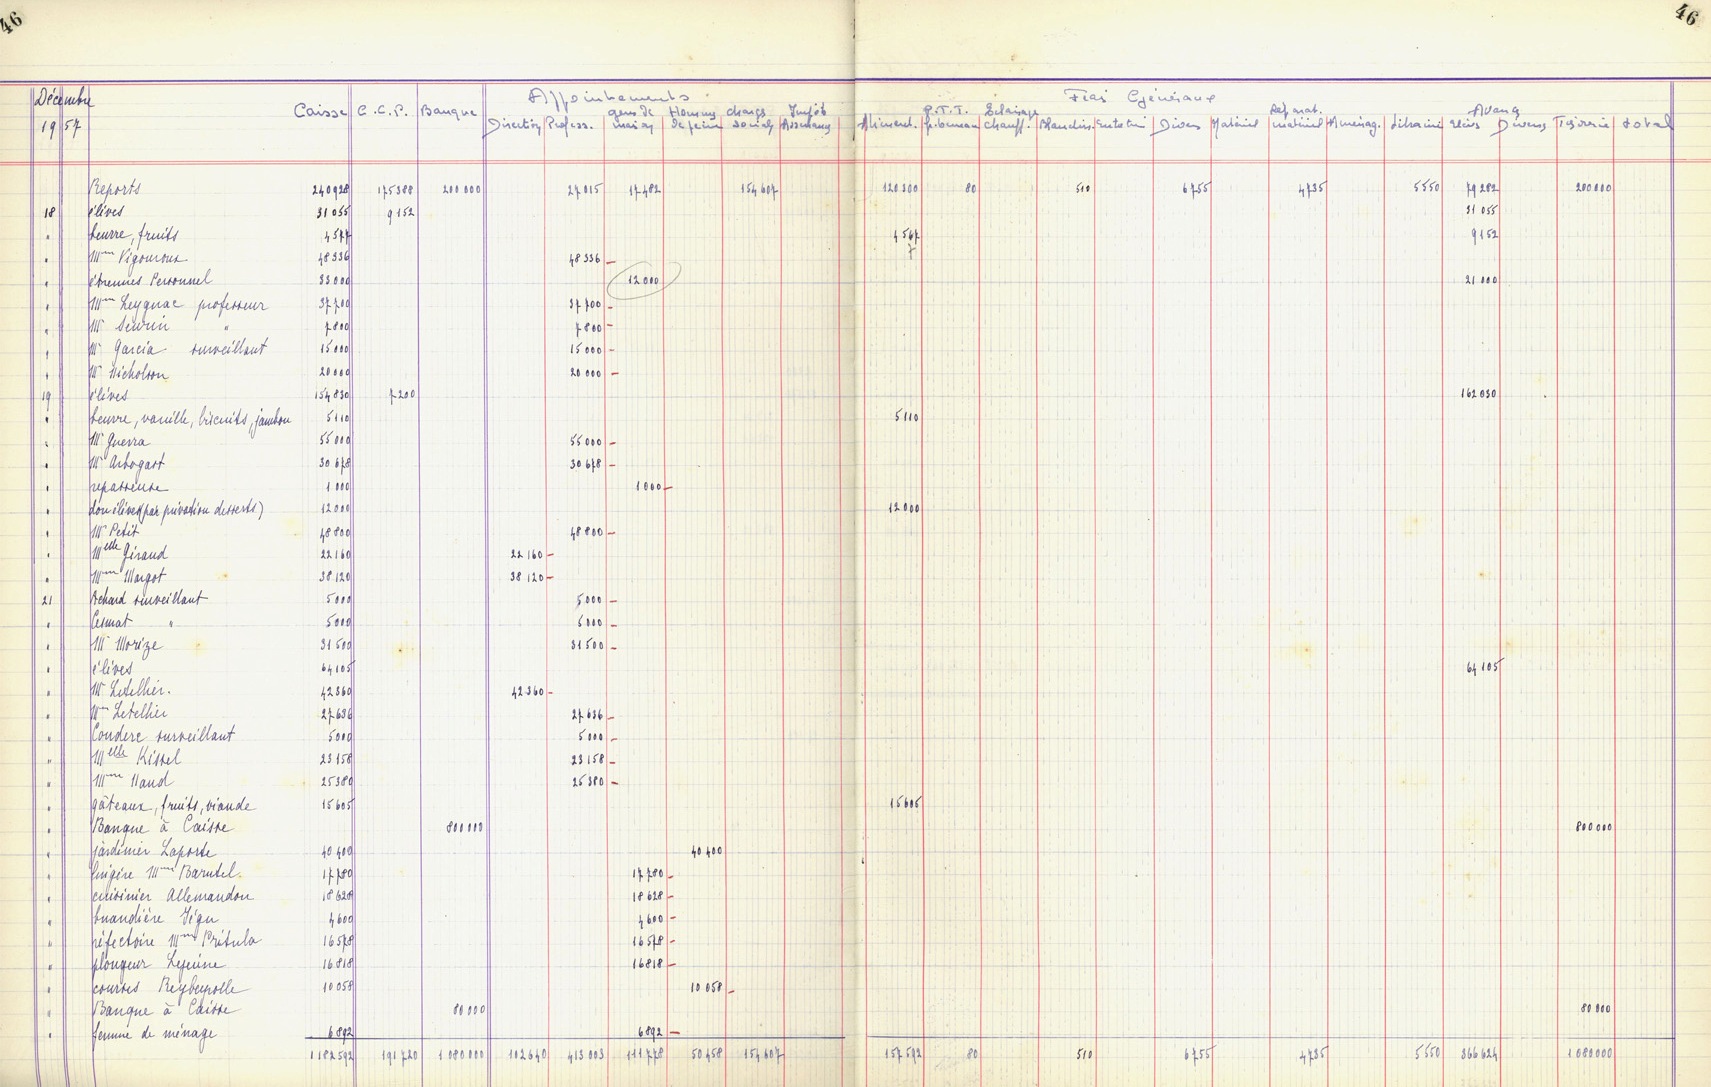 46 46
Décembre
1957
Appointements Frais Généraux
Caisse C.C.P. Banque Direction Profess. gens de maison Hommes de peine charges sociales Impôts Assurances Aliment. P.T.T. Eclairage chauff. Blanchis. Entretien Divers Matériel Réparat. matériel Aménag. Librairie Avances Elèves Divers Trésorerie total
Reports 240928 175388 200000 27015 17482 154607 120300 80 510 6755 4735 5550 79282 200000
18 élèves 31055 9152 31055
" beurre, fruits 4577 4567 9152
7
" Mme Vigouroux 48336 48336
" étrennes Personnel 33000 12000 21000
" Mme Leygnac professeur 37700 37700
" Mr " 7800 7800
" Mr Garcia surveillant 15000 15000
" Mr Nicholson 20000 20000
19 élèves 154830 7200 162030
" beurre, vanille, biscuits, jambon 5110 5110
" Mr Guerra 55000 55000
" Mr Arbogast 30678 30678
" repasseuse 1000 1000
" don élèves (par privation desserts) 12000 12000
" Mr Petit 48800 48800
" Melle Giraud 22160 22160
" Mme Margot 38120 38120
21 surveillant 5000 5000
" " 5000 5000
" Mr Morize 31500 31500
" élèves 64105 64105
" Mr Letellier. 42360 42360
" Mme Letellier 27636 27636
" Couderc surveillant 5000 5000
" Melle Kissel 23158 23158
" Mme Naud 25380 25380
" gâteaux, fruits, viande 15605 15605
" Banque à Caisse 800000 800000
" jardinier Laporte 40400 40400
" lingère Mme Barutel. 17780 17780
" cuisinier Allemandou 18628 18628
" buandière Jégu 4600 4600
" réfectoire Mme Pritula 16578 16578
" plongeur Lejeune 16818 16818
" courses Reybeyrolle 10058 10058
" Banque à Caisse 80000 80000
" femme de ménage 6892 6892
1182592 191720 1080000 102640 413003 111778 50458 154607 157592 80 510 6755 4735 5550 366624 1080000